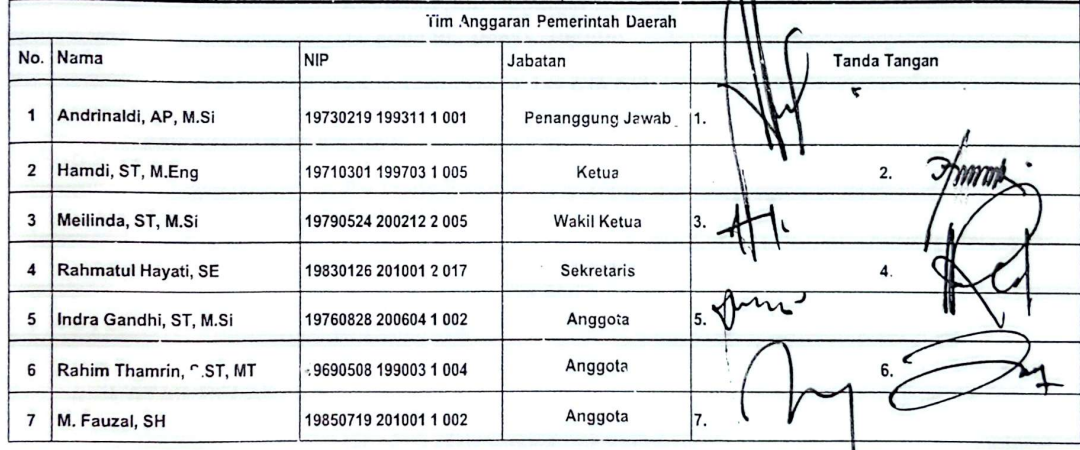 Tim Anggaran Pemerintah Daerah
No. Nama NIP Jabatan Tanda Tangan
1 Andrinaldi, AP, M.Si 19730219 199311 1 001 Penanggung Jawab 1.
2 Hamdi, ST, M.Eng 19710301 199703 1 005 Ketua 2.
3 Meilinda, ST, M.Si 19790524 200212 2 005 Wakil Ketua 3.
4 Rahmatul Hayati, SE 19830126 201001 2 017 Sekretaris 4.
5 Indra Gandhi, ST, M.Si 19760828 200604 1 002 Anggota 5.
6 Rahim Thamrin, MT 199003 1 004 Anggota 6.
7 M. Fauzal, SH 19850719 201001 1 002 Anggota 7.